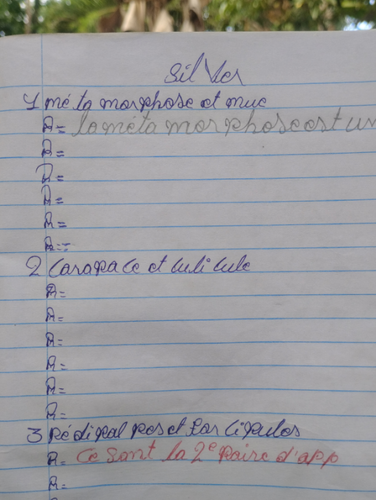 Silver
1 méta morphose et mue
R= la méta morphose est un
R=
R=
R=
R=
R=
2 Carapace et cuticule
R=
R=
R=
R=
R=
R=
3 Pédipalpes et
R= Ce sont la 2e paire d'app
R=